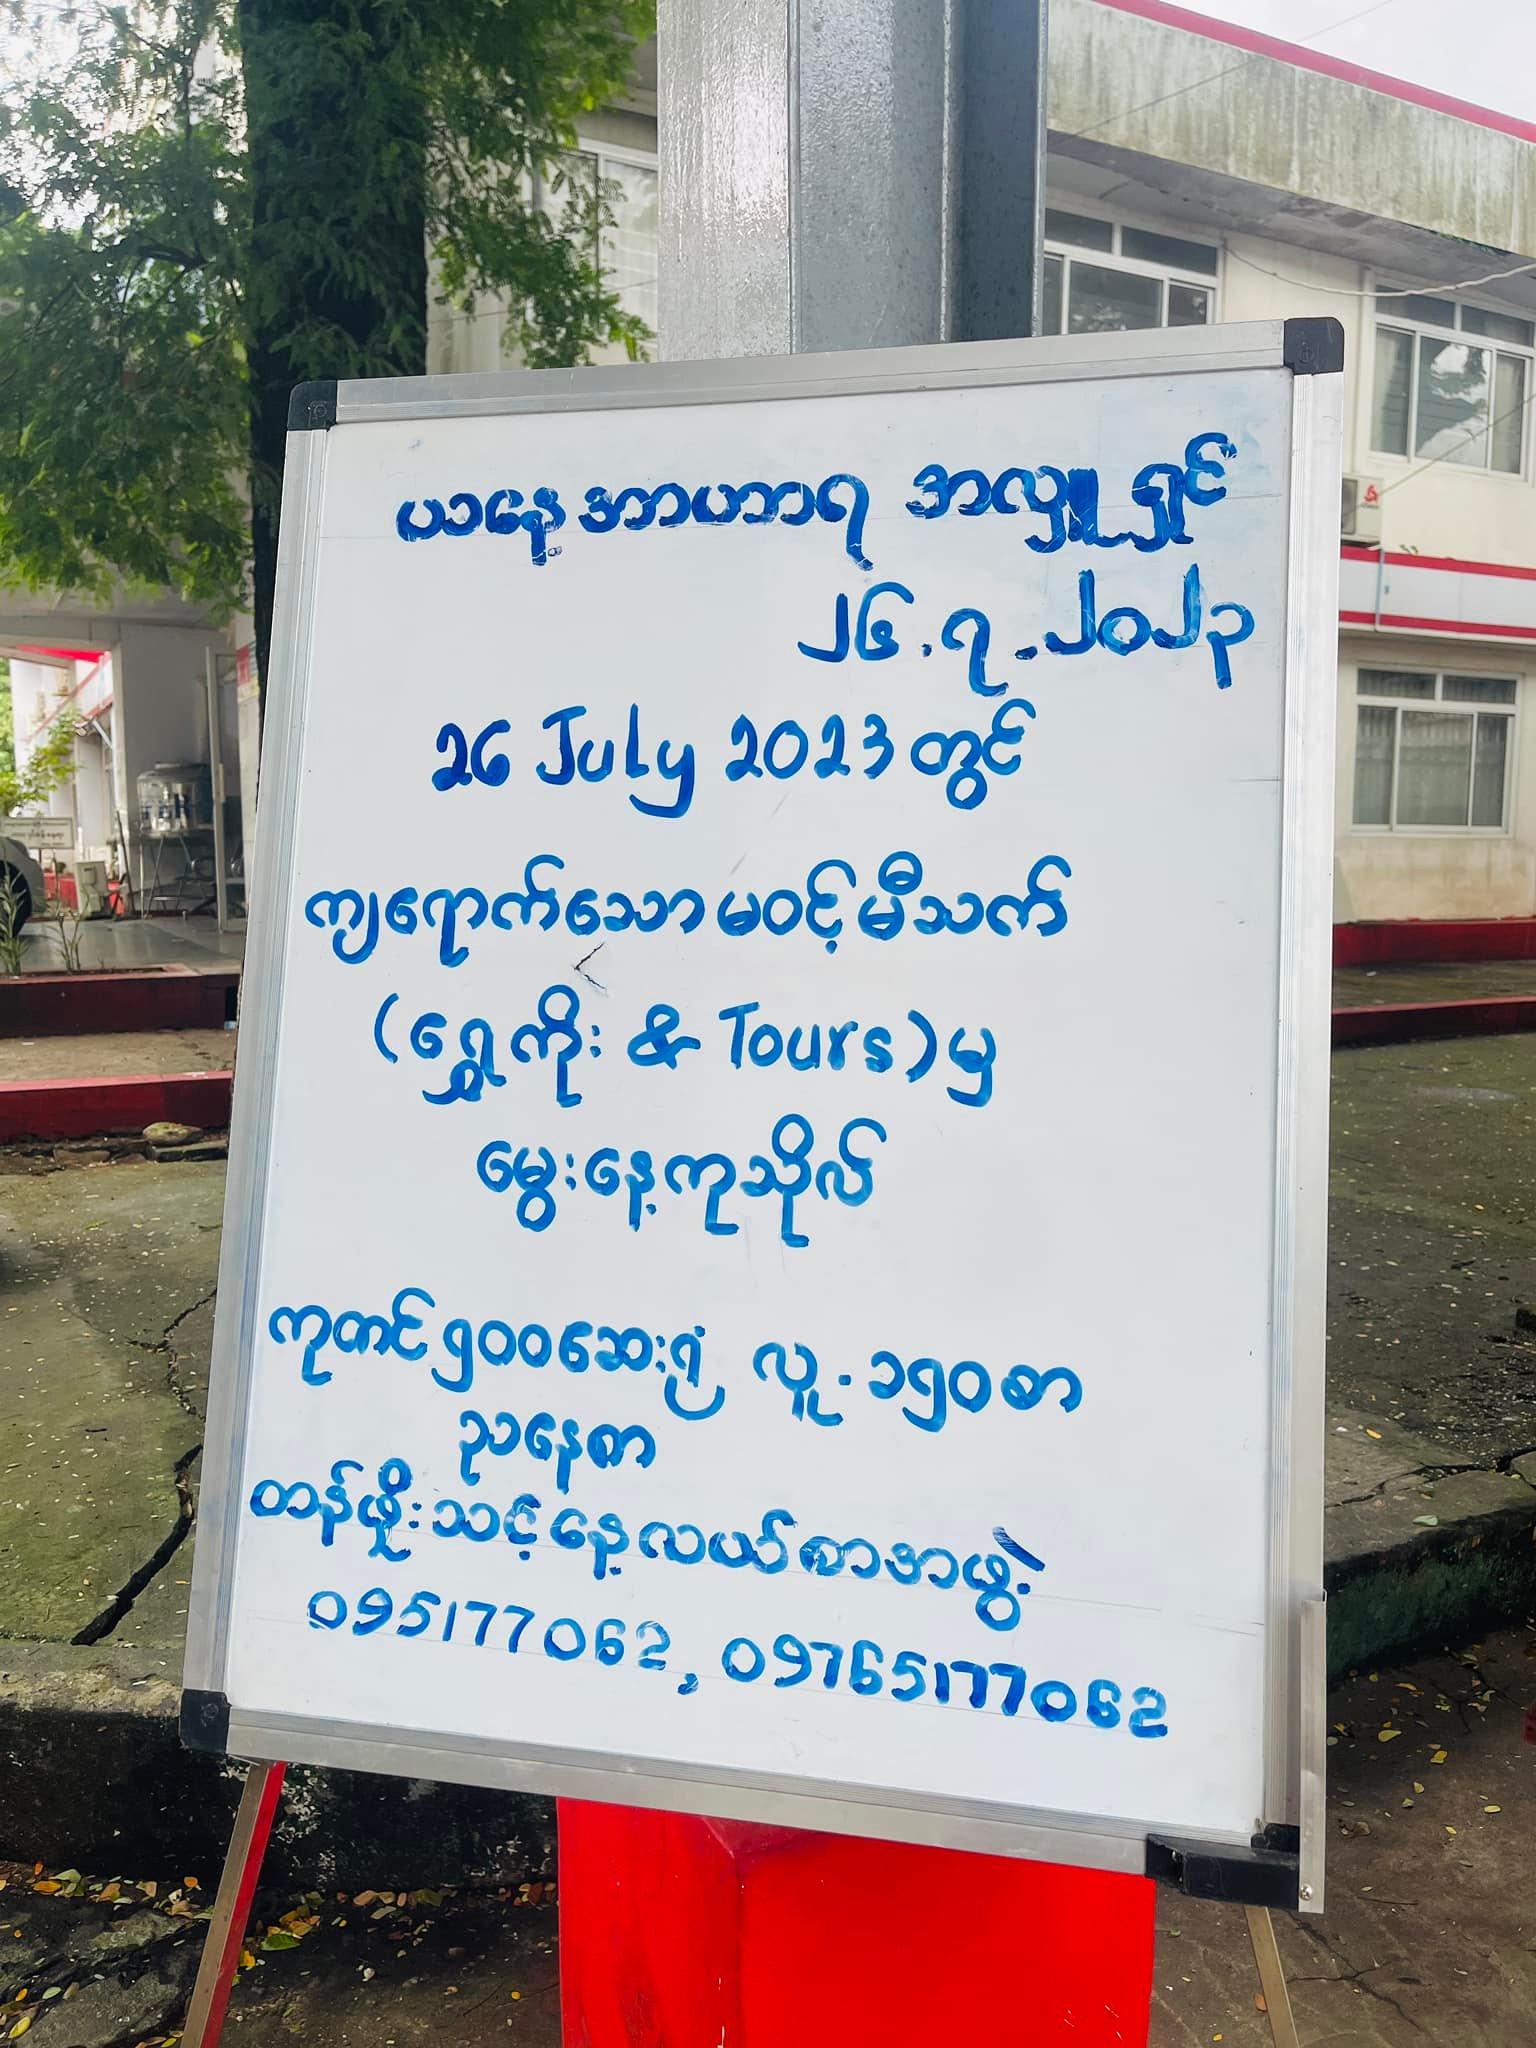 ယနေ့အာဟာရ အလှူရှင်
၂၆.၇.၂၀၂၃
26 July 2023 တွင်
ကျရောက်သောမဝင့်မီသက်
(ရွှေကိုး & Tours) မှ
မွေးနေ့ကုသိုလ်
ကုတင်၅၀၀ဆေးရုံ လူ.၁၅၀စာ
ညနေစာ
တန်ဖိုးသင့်နေ့လယ်စာအဖွဲ့
095177062, 09765177062